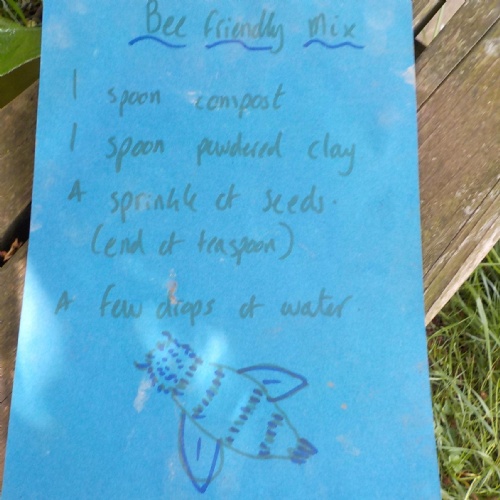 Bee Friendly Mix
1 spoon compost
1 spoon powdered clay
A sprinkle of seeds.
(end of teaspoon)
A few drops of water